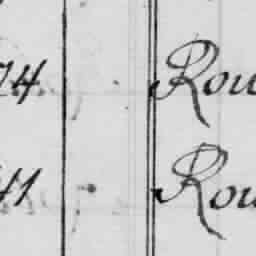 74 Rou
41 Rou